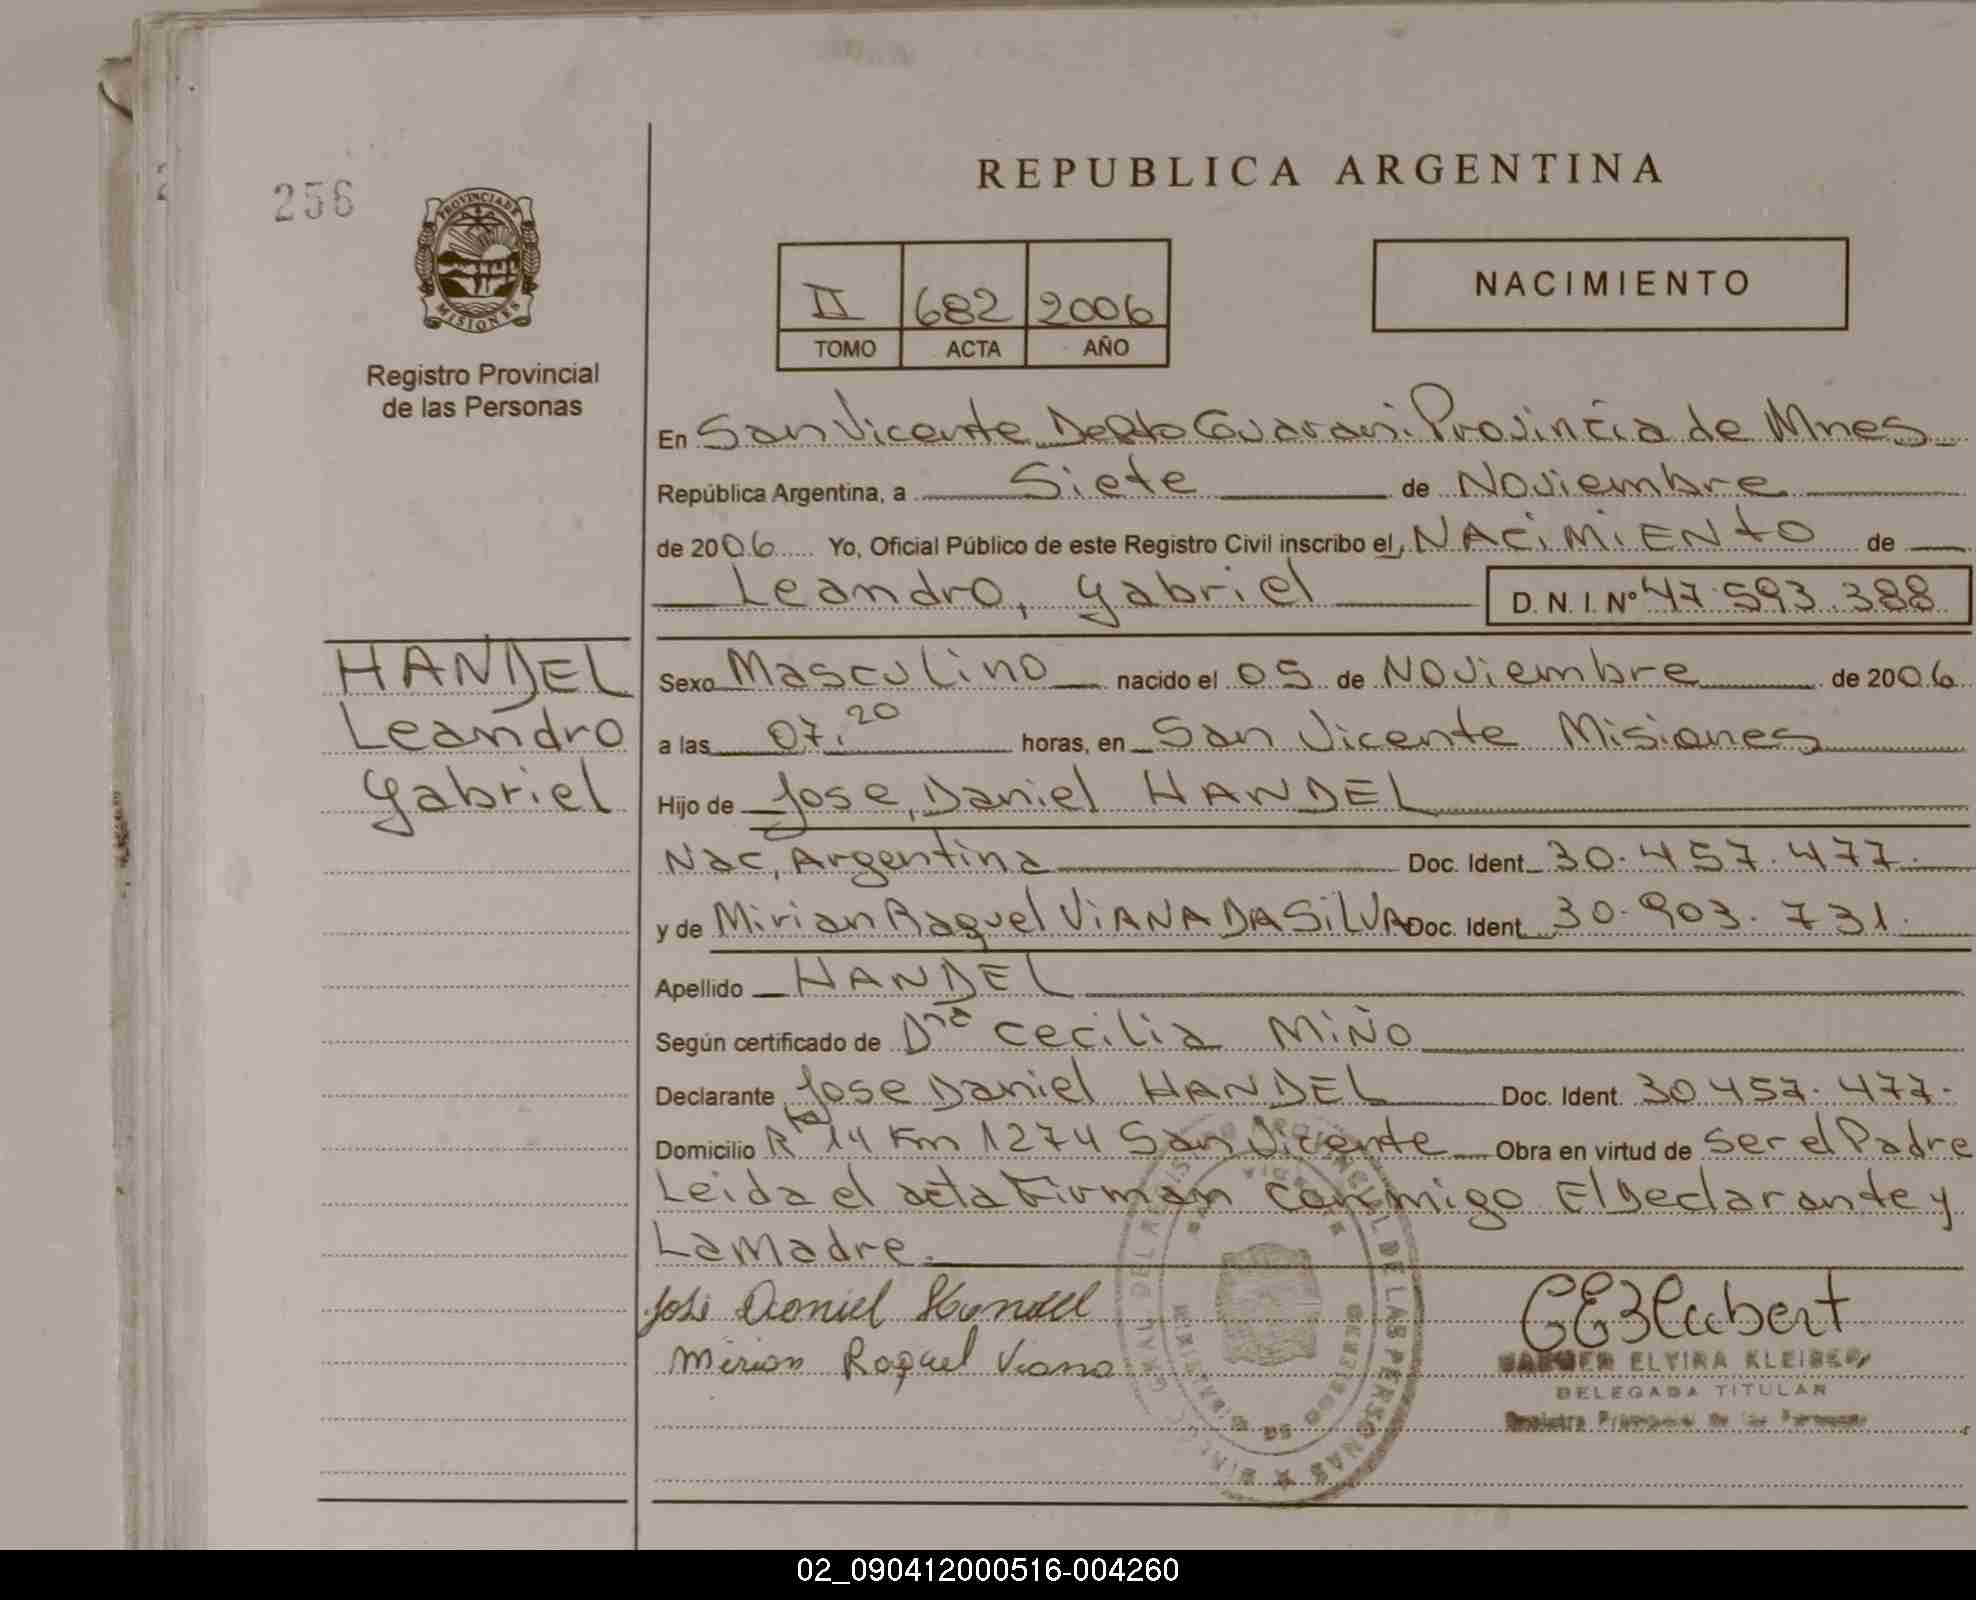 REPUBLICA ARGENTINA
256
PROVINCIA DE
MISIONES
Registro Provincial
de las Personas
II 682 2006
TOMO ACTA AÑO
NACIMIENTO
En San Vicente Depto Guarani. Provincia de Mnes
República Argentina, a Siete de Noviembre
de 2006 Yo, Oficial Público de este Registro Civil inscribo el NACiMiENtO de
Leandro, Gabriel D. N. I. Nº 47.593.388
HANDEL
Leandro
Gabriel
Sexo Masculino nacido el 05 de Noviembre de 2006
a las 07.20 horas, en San Vicente Misiones
Hijo de Jose, Daniel HANDEL
Nac, Argentina Doc. Ident. 30.457.477.
y de Mirian Raquel ViANA DA SilVA Doc. Ident. 30.903.731.
Apellido HANDEL
Según certificado de Dra Cecilia MiÑo
Declarante Jose Daniel HANDEL Doc. Ident. 30.457.477.
Domicilio Rta 14 Km 1274 San Vicente Obra en virtud de Ser el Padre
Leida el acta Firman conmigo El Declarante y
La Madre.
José Daniel Handel
Mirian Raquel Viana
ELVIRA KLEIBER
DELEGADA TITULAR
Registro Provincial de las Personas
DE LAS PERSONAS
02_090412000516-004260